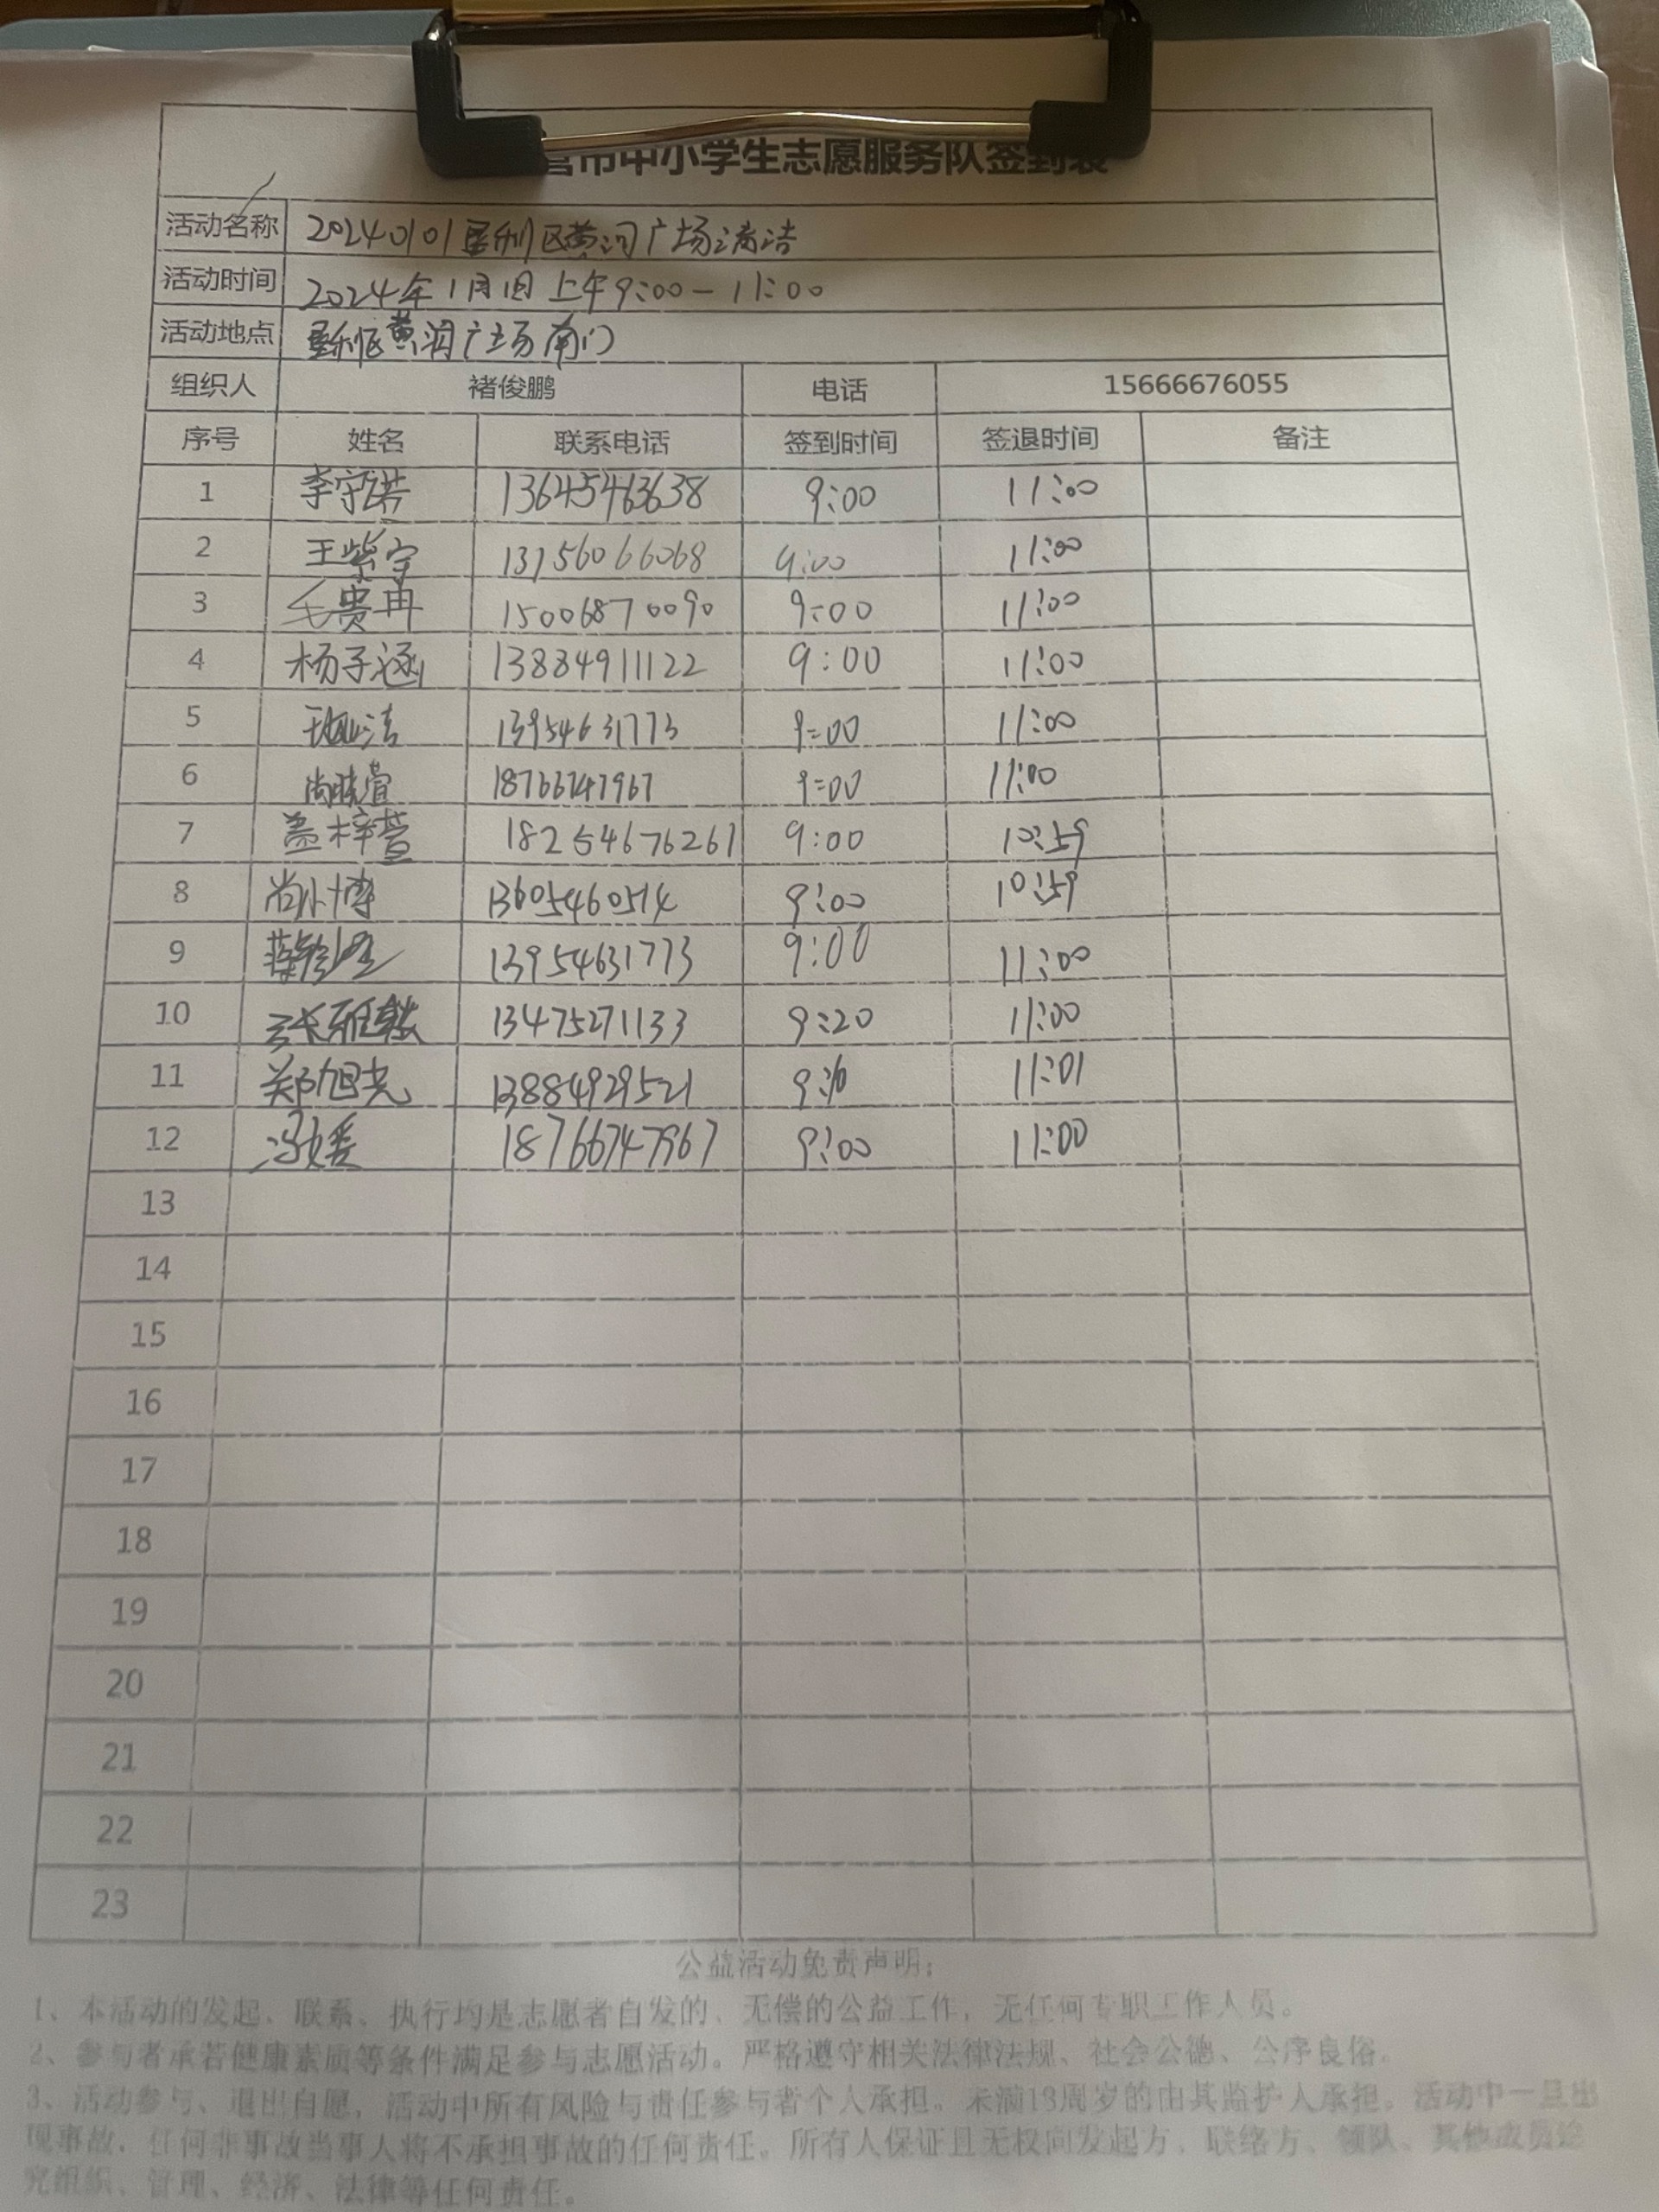 营市中小学生志愿服务队签到表
活动名称 20240101垦利区黄河广场清洁
活动时间 2024年1月1日上午9:00-11:00
活动地点 垦利区黄河广场南门
组织人 褚俊鹏 电话 15666676055
序号 姓名 联系电话 签到时间 签退时间 备注
1 李宇诺 13645463638 9:00 11:00
2 王紫宁 13156066068 9:00 11:00
3 毛贵冉 15006870090 9:00 11:00
4 杨子涵 13884911122 9:00 11:00
5 13954631773 9:00 11:00
6 尚晓萱 18766747967 9:00 11:00
7 盖梓萱 18254676261 9:00 10:59
8 尚小博 13605460514 9:00 10:59
9 13954631773 9:00 11:00
10 13475271133 9:20 11:00
11 郑旭光 13884929521 11:01
12 冯媛 18766747967 9:00 11:00
13
14
15
16
17
18
19
20
21
22
23
公益活动免责声明：
1、本活动的发起、联系、执行均是志愿者自发的、无偿的公益工作，无任何专职工作人员。
2、参与者承若健康素质等条件满足参与志愿活动。严格遵守相关法律法规、社会公德、公序良俗。
3、活动参与、退出自愿，活动中所有风险与责任参与者个人承担。未满18周岁的由其监护人承担。活动中一旦出
现事故，任何非事故当事人将不承担事故的任何责任。所有人保证且无权向发起方、联络方、领队、其他成员追
究组织、管理、经济、法律等任何责任。